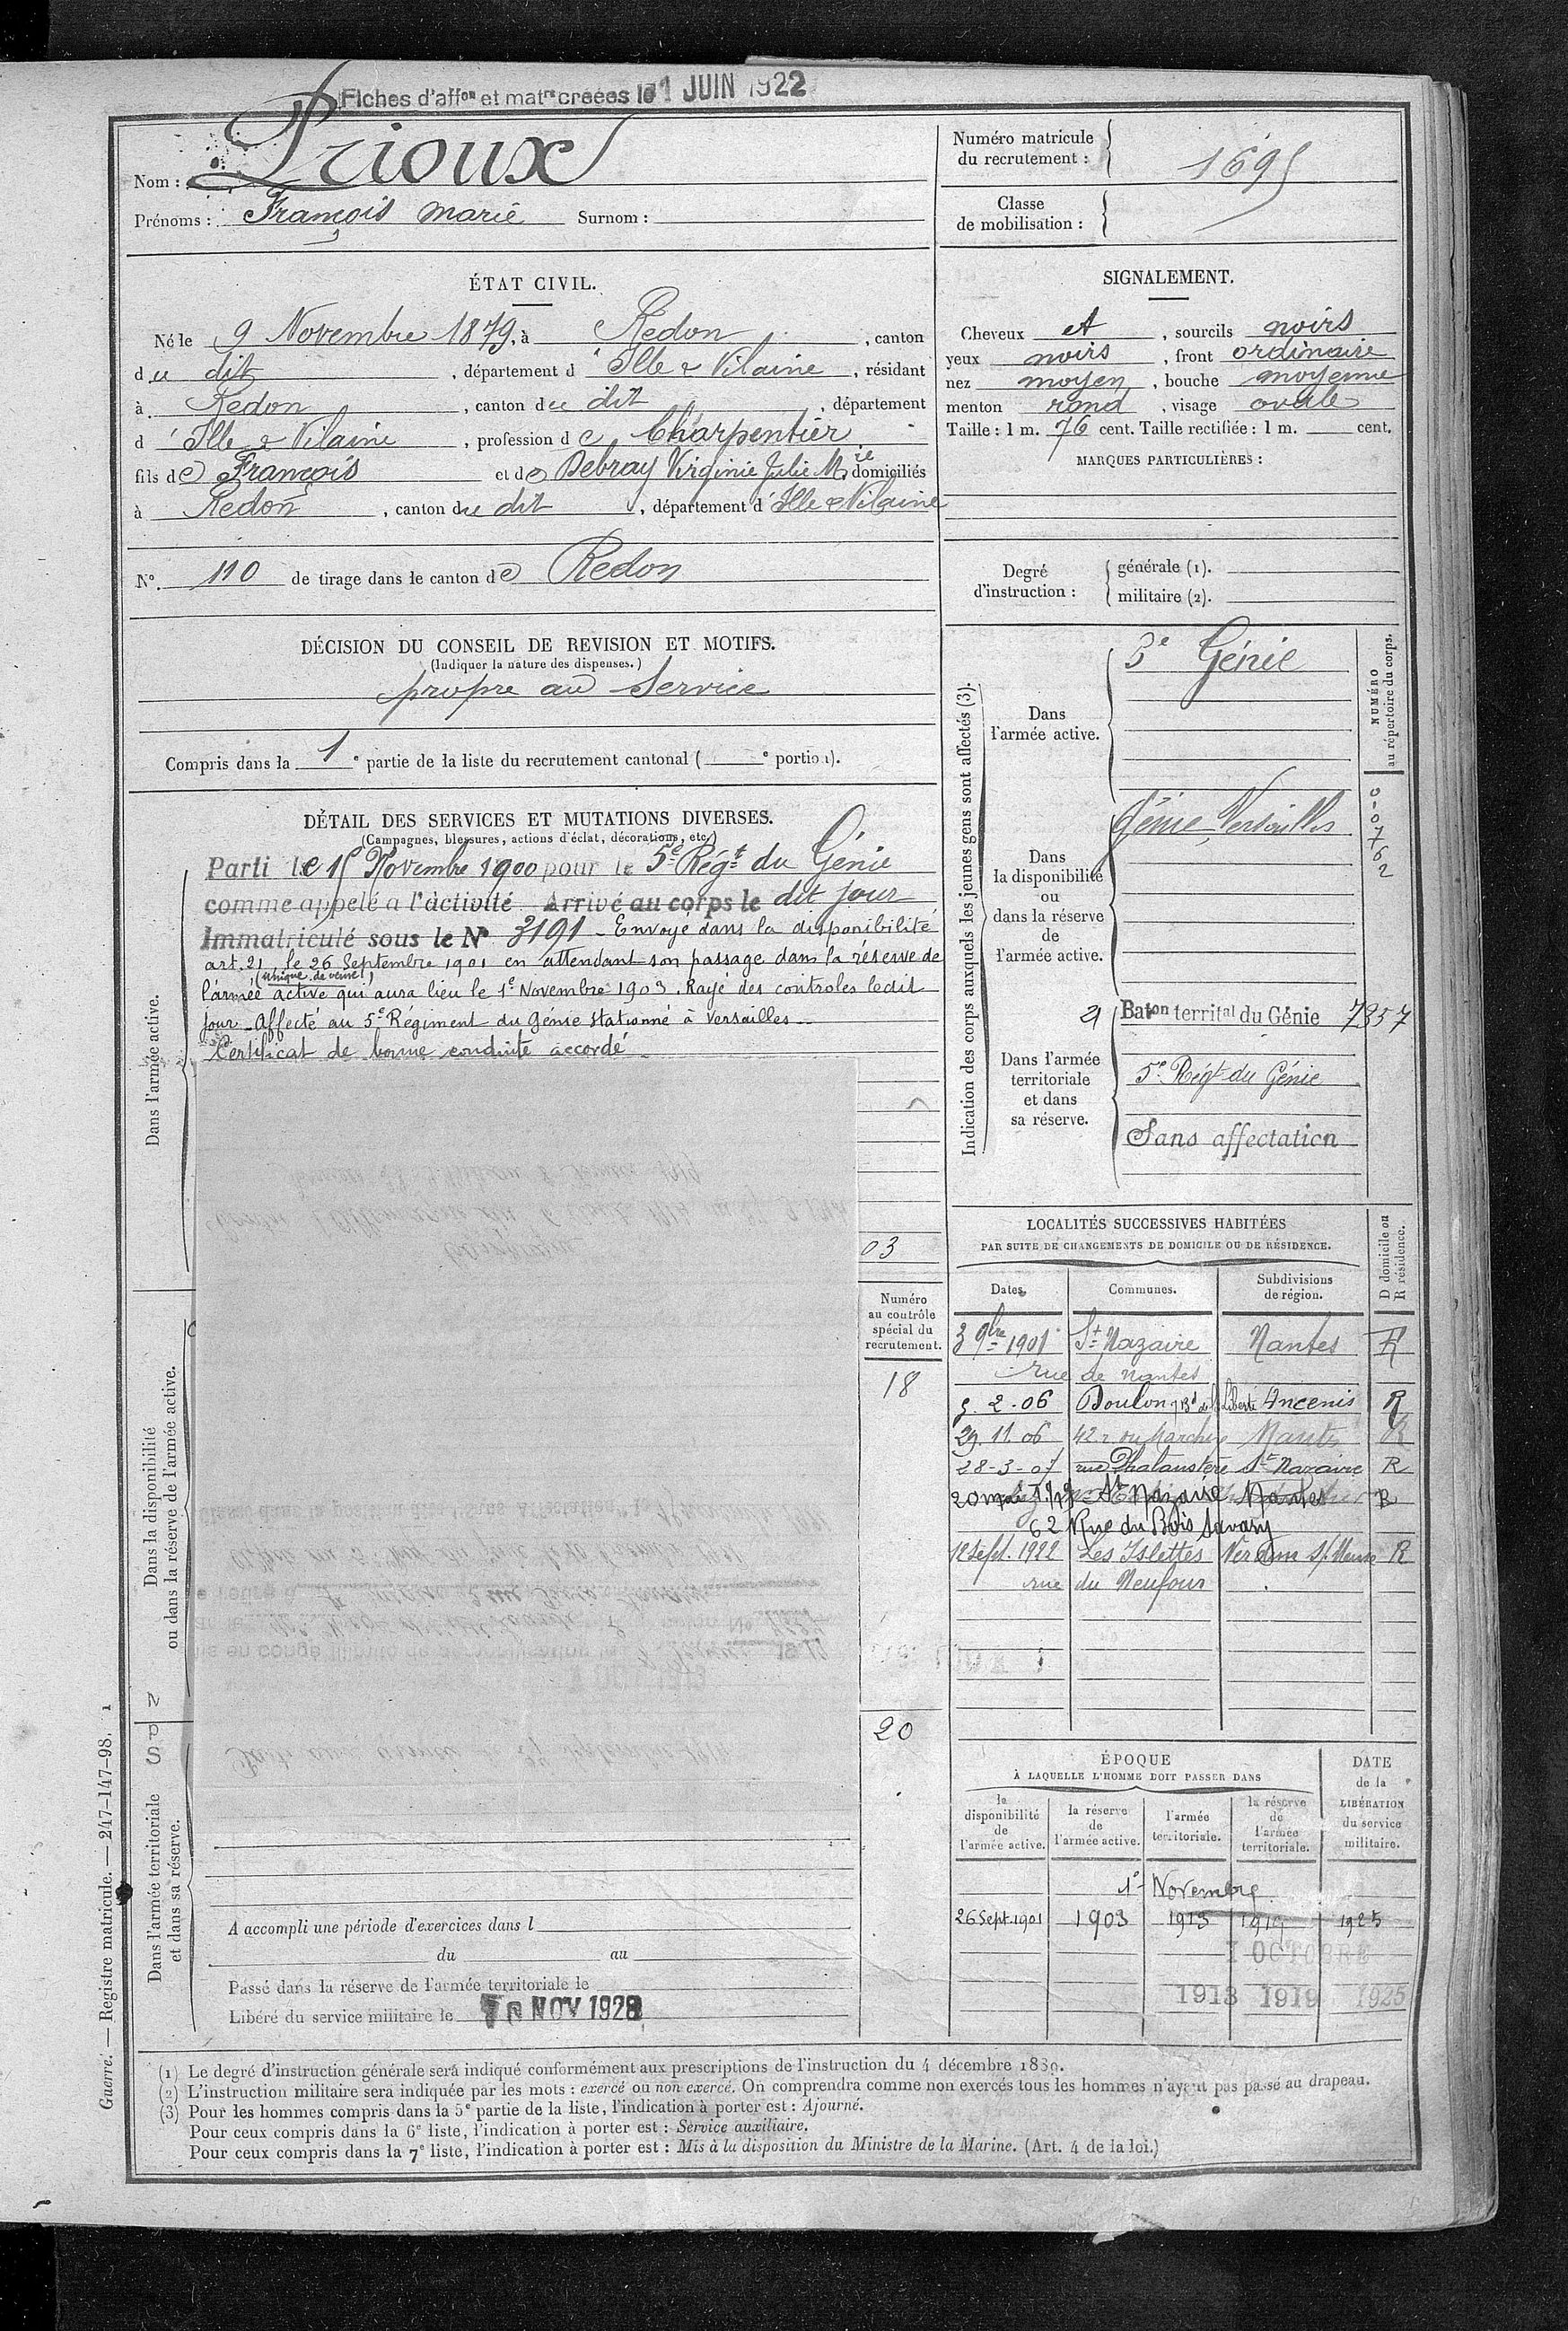 Fiches d'affon et matre créées le 1 JUIN 1922
Nom : Prioux
Prénoms : François Marie Surnom :
Numéro matricule du recrutement : 1695
Classe de mobilisation :
ÉTAT CIVIL.
Né le 9 Novembre 1879, à Redon, canton
du dit, département d'Ille & Vilaine, résidant
à Redon, canton du dit, département
d'Ille & Vilaine, profession de Charpentier
fils de François et de Debray Virginie Julie Mie domiciliés
à Redon, canton du dit, département d'Ille & Vilaine
N° 110 de tirage dans le canton de Redon
SIGNALEMENT.
Cheveux et, sourcils noirs
yeux noirs, front ordinaire
nez moyen, bouche moyenne
menton rond, visage ovale
Taille : 1 m. 76 cent. Taille rectifiée : 1 m. cent.
MARQUES PARTICULIÈRES :
Degré d'instruction :
générale (1).
militaire (2).
DÉCISION DU CONSEIL DE REVISION ET MOTIFS.
(Indiquer la nature des dispenses.)
propre au Service
Compris dans la 1e partie de la liste du recrutement cantonal ( e portion).
DÉTAIL DES SERVICES ET MUTATIONS DIVERSES.
(Campagnes, blessures, actions d'éclat, décorations, etc.)
Dans l'armée active.
Parti le 15 Novembre 1900 pour le 5e Régt du Génie
comme appelé a l'activité Arrivé au corps le dit jour
Immatriculé sous le N° 3191 - Envoyé dans la disponibilité
art. 21 le 26 Septembre 1901 en attendant son passage dans la réserve de
(unique de veuve)
l'armée active qui aura lieu le 1e Novembre 1903. Rayé des controles ledit
jour - Affecté au 5e Régiment du Génie stationné à Versailles -
Certificat de bonne conduite accordé
03
Numéro au contrôle spécial du recrutement.
18
20
Dans la disponibilité ou dans la réserve de l'armée active.
Dans l'armée territoriale et dans sa réserve.
A accompli une période d'exercices dans l
du au
Passé dans la réserve de l'armée territoriale le
Libéré du service militaire le 10 NOV 1928
Indication des corps auxquels les jeunes gens sont affectés (3).
NUMÉRO au répertoire du corps.
Dans l'armée active.
5e Génie
Dans la disponibilité ou dans la réserve de l'armée active.
Génie Versailles
0-0762
Dans l'armée territoriale et dans sa réserve.
Baton territal du Génie 7357
5e Régt du Génie
Sans affectation
LOCALITÉS SUCCESSIVES HABITÉES
PAR SUITE DE CHANGEMENTS DE DOMICILE OU DE RÉSIDENCE.
D domicile ou R résidence.
Dates. Communes. Subdivisions de région.
3 9bre 1901 St Nazaire Nantes R
rue de Nantes
5-2-06 Doulon 7 Bd de la Liberté Ancenis R
29.11.06 42 r du Marchix Nantes R
28-3-07 rue Phalanstère St Nazaire R
St Nazaire Nantes R
62 Rue du Bois Savary
12 Sept. 1922 Les Islettes Verdun s/Meuse R
rue du Neufour
ÉPOQUE
À LAQUELLE L'HOMME DOIT PASSER DANS
la disponibilité de l'armée active.
la réserve de l'armée active.
l'armée territoriale.
la réserve de l'armée territoriale.
DATE de la LIBÉRATION du service militaire.
1e Novembre
26 Sept. 1901 1903 1913 1919 1925
1 OCTOBRE
1913 1919 1925
(1) Le degré d'instruction générale sera indiqué conformément aux prescriptions de l'instruction du 4 décembre 1889.
(2) L'instruction militaire sera indiquée par les mots : exercé ou non exercé. On comprendra comme non exercés tous les hommes n'ayant pas passé au drapeau.
(3) Pour les hommes compris dans la 5e partie de la liste, l'indication à porter est : Ajourné.
Pour ceux compris dans la 6e liste, l'indication à porter est : Service auxiliaire.
Pour ceux compris dans la 7e liste, l'indication à porter est : Mis à la disposition du Ministre de la Marine. (Art. 4 de la loi.)
Guerre. — Registre matricule. — 247-147-98. 1